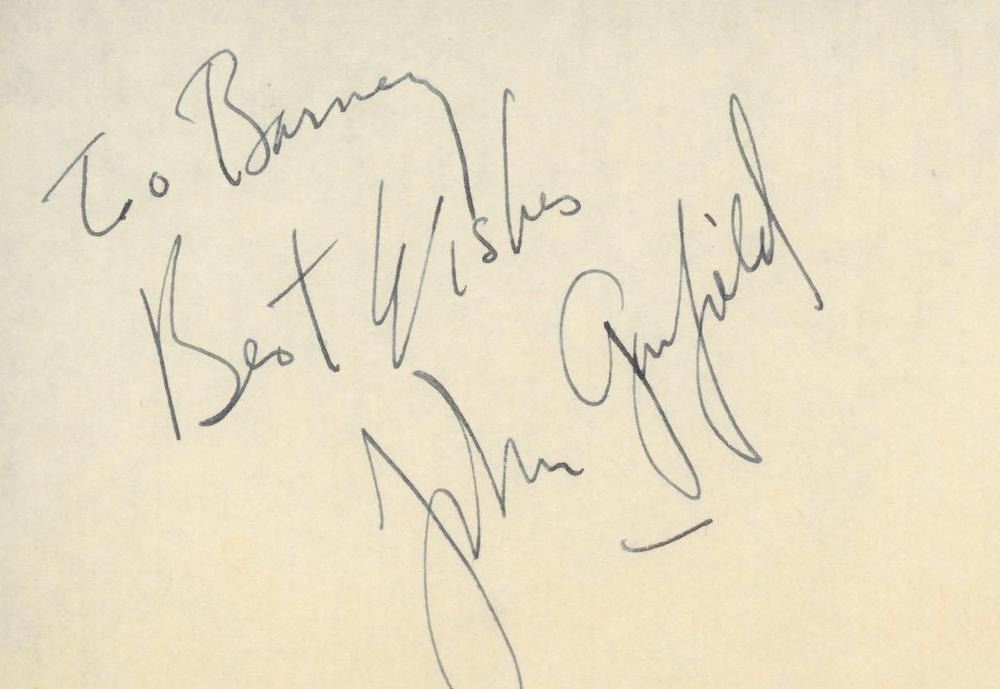 To Barney
Best Wishes
John Garfield